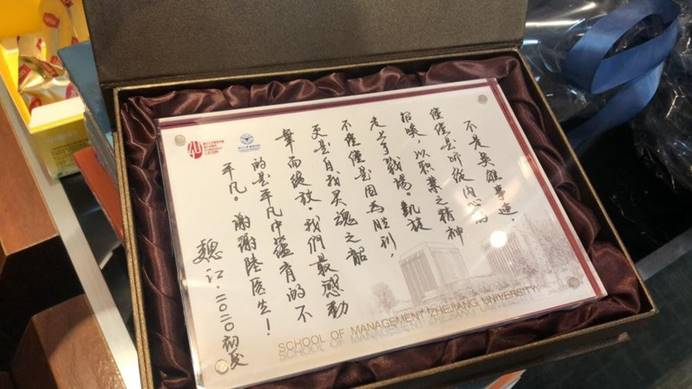 不是英雄事迹、
仅仅是听从内心的
招唤，以职业之精神
走上了战场。凯旋
不仅仅是因为胜利，
更是自我灵魂之韶
華而绽放。我们最感動
的是平凡中蕴育的不
平凡。谢谢陆医生！
魏江.二〇二〇初夏
SCHOOL OF MANAGEMENT ZHEJIANG UNIVERSITY